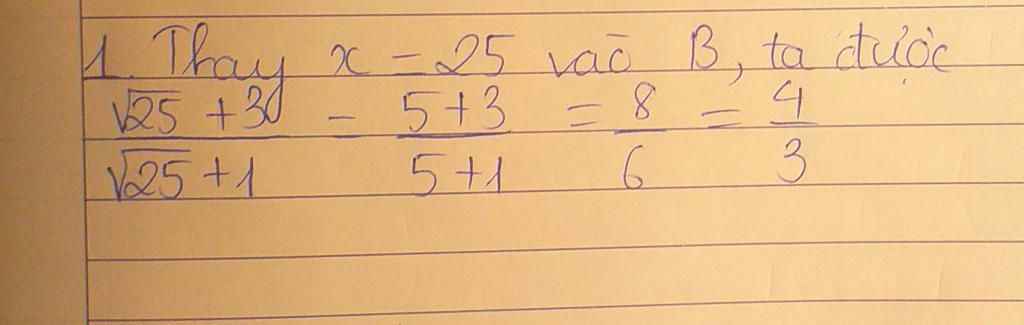 1. Thay x = 25 vào B, ta được
(√25 + 3)/(√25 + 1) = (5+3)/(5+1) = 8/6 = 4/3